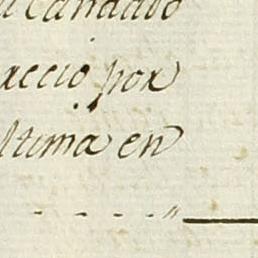 Candado
accio por
ltima en